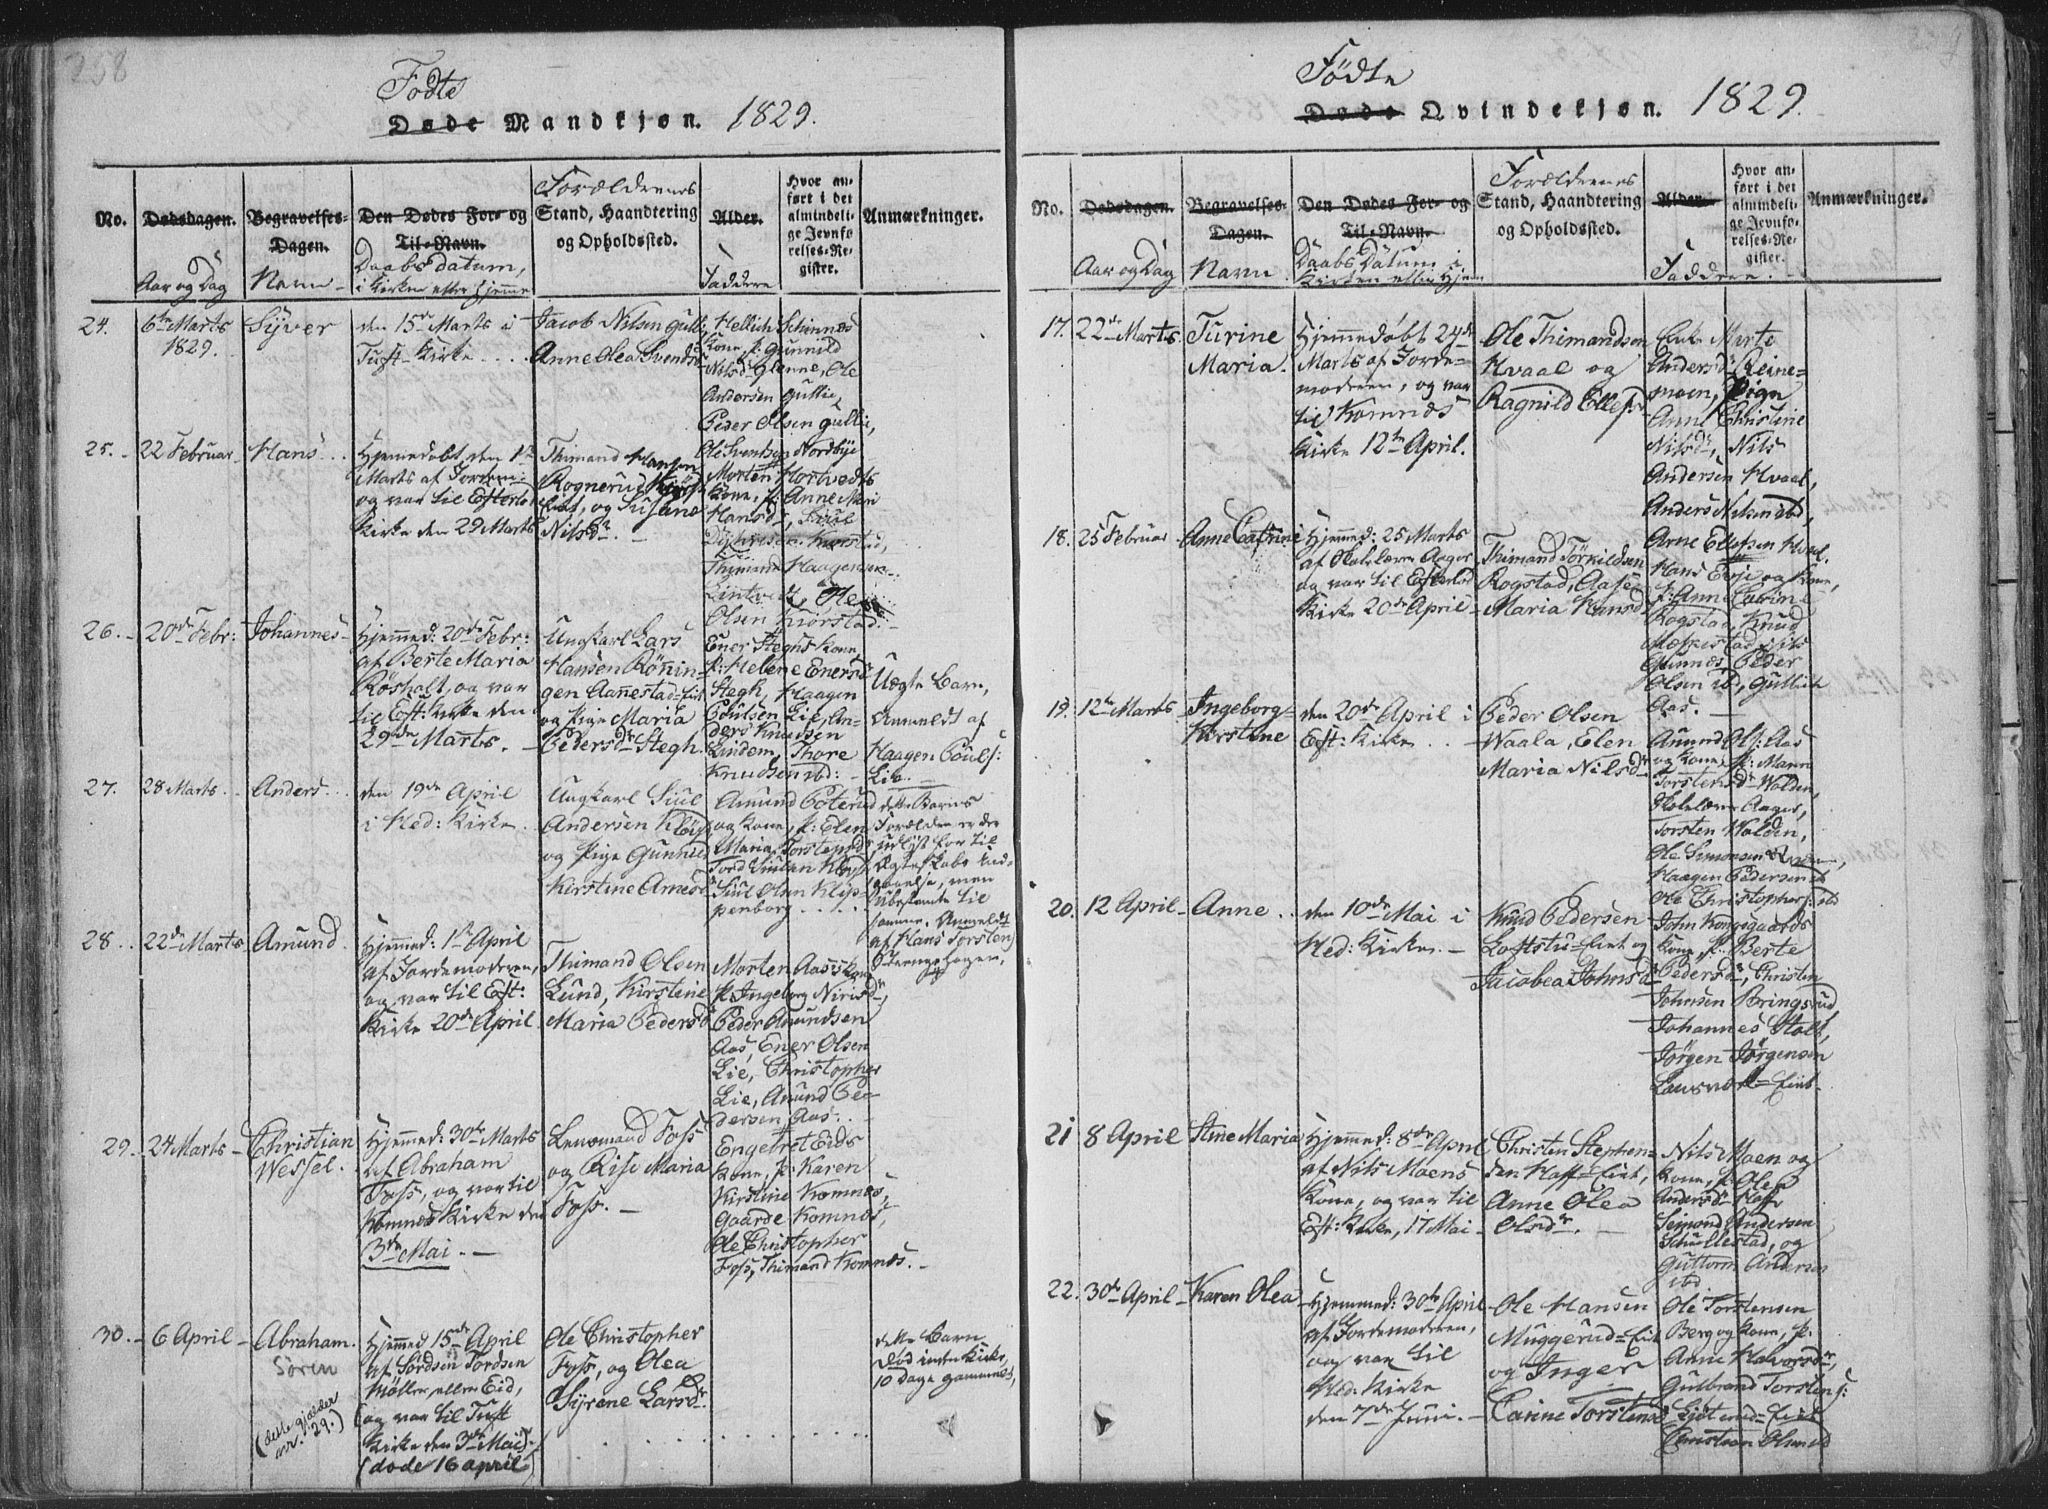 258
Fødte
Døde Mandkjøn. 1829.
No.
Dødsdagen.
Aar og Dag
Begravelses-
Dagen.
Navn
Den Dødes For- og
Til-Navn.
Daabs datum,
i Kirken eller Hjemme
Forældrenes
Stand, Haandtering
og Opholdssted.
Alder.
Faddere
Hvor an-
ført i det
almindeli-
ge Jevnfø-
relses-Re-
gister.
Anmærkninger.
24.
6te Marts
1829.
Syver
den 15de Marts i
Tuft Kirke
Jacob Nilsen Gulli
Anne Olea Svendsd
Kone, p: Gunnild
Nilsd Glenne, Ole
Andersen Gullie,
Peder Olsen Gullie,
Ole Svendsen Nordbye
25.
22 Februar
Hans
Hjemmedøbt den 1te
Marts af Jordem:
og var til Efterløt
Kirke den 29 Marts
Thimand Hansen
Rognerud
Eiet, og Susane
Nilsdr.
Morten Hortvedts
Kone, p: Anne Mari
Hansdr, Juul
Kiørstad,
Thimand Haagensen
Lintvedt, Ole
Olsen Kiørstad.
26.
20de Febr:
Johannes
Hjemmed: 20de Febr:
af Berte Maria
Røsholt, og var
til Eft: Kirke den
29de Marts.
Ungkarl Lars
Hansen Rønin-
gen Aanestad=Eiet
og Pige Maria
Pedersdr Stegh.
Ener Steghs Kone
p: Helene Enersd
Stegh, Haagen
Poulsen Lie, An-
ders Knudsen
Lindem, Thore
Knudsen ibd:
Uægte Barn,
Anmeldt af
Haagen Pouls:
Lie.
27.
28 Marts
Anders
den 19de April
i Hed: Kirke
Ungkarl Juul
Andersen Kløp
og Pige Gunnild
Kirstine Arnesd
Amund Poterud
og Kone, p: Elen
Maria Torstensd
Tord Juulsen Kløp
Juul Olsen Kløp-
penborg
dette Barns
Forældre er der
udlyst for til
Ægteskabs Ind-
gaaelse, men
ubestemte til
samme. Anmeldt
af Hans Torstens
Strengehagen.
28.
22de Marts
Amund.
Hjemmed: 1te April
af Jordemoderen,
og var til Eft:
Kirke 20de April
Thimand Olsen
Lund, Kirstine
Maria Pedersd
Morten Aass Kone
p: Ingeborg Nirisdr,
Peder Amundsen
Aas, Ener Olsen
Lie, Christopher
Lie, Amund Pe-
dersen Aas.
29.
24 Marts
Christian
Wessel.
Hjemmed: 30te Marts
af Abraham
Foss, og var til
Komnes Kirke den
3de Mai.
Lensmand Foss
og Rise Maria
Foss.
Engebret Eids
Kone, p: Karen
Kirstine Komnes,
Gaarde Komnes,
Ole Christopher
Foss, Thimand Komnes.
30.
6 April
Abraham.
Søren
(dette gjælder
nr. 29.)
Hjemmed 15de April
af Sørdsen Tordsen
Møller eller Eid,
(og var til Tuft
Kirke den 3de Mai).
(døde 16 april)
Ole Christopher
Foss, og Olea
Syrene Larsdr.
dette Barn
død inden Kirke,
10 Dage gammel,
Fødte
Døde Qvindekjøn. 1829.
No.
Dødsdagen.
Aar og Dag
Begravelses-
Dagen.
Navn
Den Dødes For- og
Til-Navn.
Daabs Datum i
Kirken eller Hjem
Forældrenes
Stand, Haandtering
og Opholdssted.
Alder.
Faddere.
Hvor an-
ført i det
almindeli-
ge Jevnfø-
relses-Re-
gister.
Anmærkninger.
17.
22de Marts
Turine
Maria.
Hjemmedøbt 24de
Marts af Jorde-
moderen, og var
til Komnes
Kirke 12te April.
Ole Thimandsen
Hvaal og
Ragnild Ellefsd
Enke Marte
Andersdr Reine-
moen, Pige
Anne Christine
Nilsdr, Nils
Andersen Hvaal,
Anders Nilsen ibd,
Arne Ellefsen Hval.
18.
25 Februar
Anne Catrine
Hjemmed: 25 Marts
af Skolelærer Aager
og var til Efterløt
Kirke 20de April
Thimand Torkildsen
Rogstad, Aase
Maria Hansd
Hans Evje og Kone,
p: Anne Catrine
Rogstad, Knud
Nils
Peder
Olsen ibd, Gullich
Aas.
19.
12te Marts
Ingeborg
Kirstine
den 20de April i
Eft: Kirke
Peder Olsen
Waala, Elen
Maria Nilsdr
Amund Ols: Aas
og Kone, p: Maria
Torstensdr Wolden,
Skolelærer Aager,
Torsten Wolden,
Ole Simonsen
Haagen Pedersen ib
Ole Christophers: ibd
20.
12 April
Anne
den 10de Mai i
Hed: Kirke.
Knud Pedersen
Loftstu=Eiet og
Jacobea Johnsd
John Kongsgaards
Kone, p: Berte
Pedersdr, Christen
Johnsen Bringsrud
Johannes Holt,
Jørgen Jørgensen
Lousvold=Eiet
21
8 April
Stine Maria
Hjemmed: 8de April
af Nils Moens
Kone, og var til
Eft: Kirke, 17 Mai
Christen Stephen-
sen Haff=Eiet,
Anne Olea
Olsdr.
Nils Moen og
Kone, p: Olea
Andersdr Haff
Simond Andersen
Schullestad, og
Guttorm Andersen
ibd
22.
30te April
Karen Olea
Hjemmed: 30te April
af Jordemoderen,
og var til
Hed: Kirke
den 7de Juni.
Ole Hansen
Muggerud=Eiet
og Inger
Carine Torstensd
Ole Torstensen
Berg og Kone, p:
Anne Halvorsdr,
Gulbrand Torstens:
Ljøterud=Eiet
Christian Olsen ibd